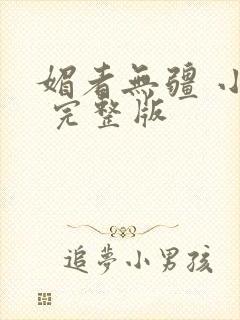 媚者無疆 小
完整版
追夢小男孩